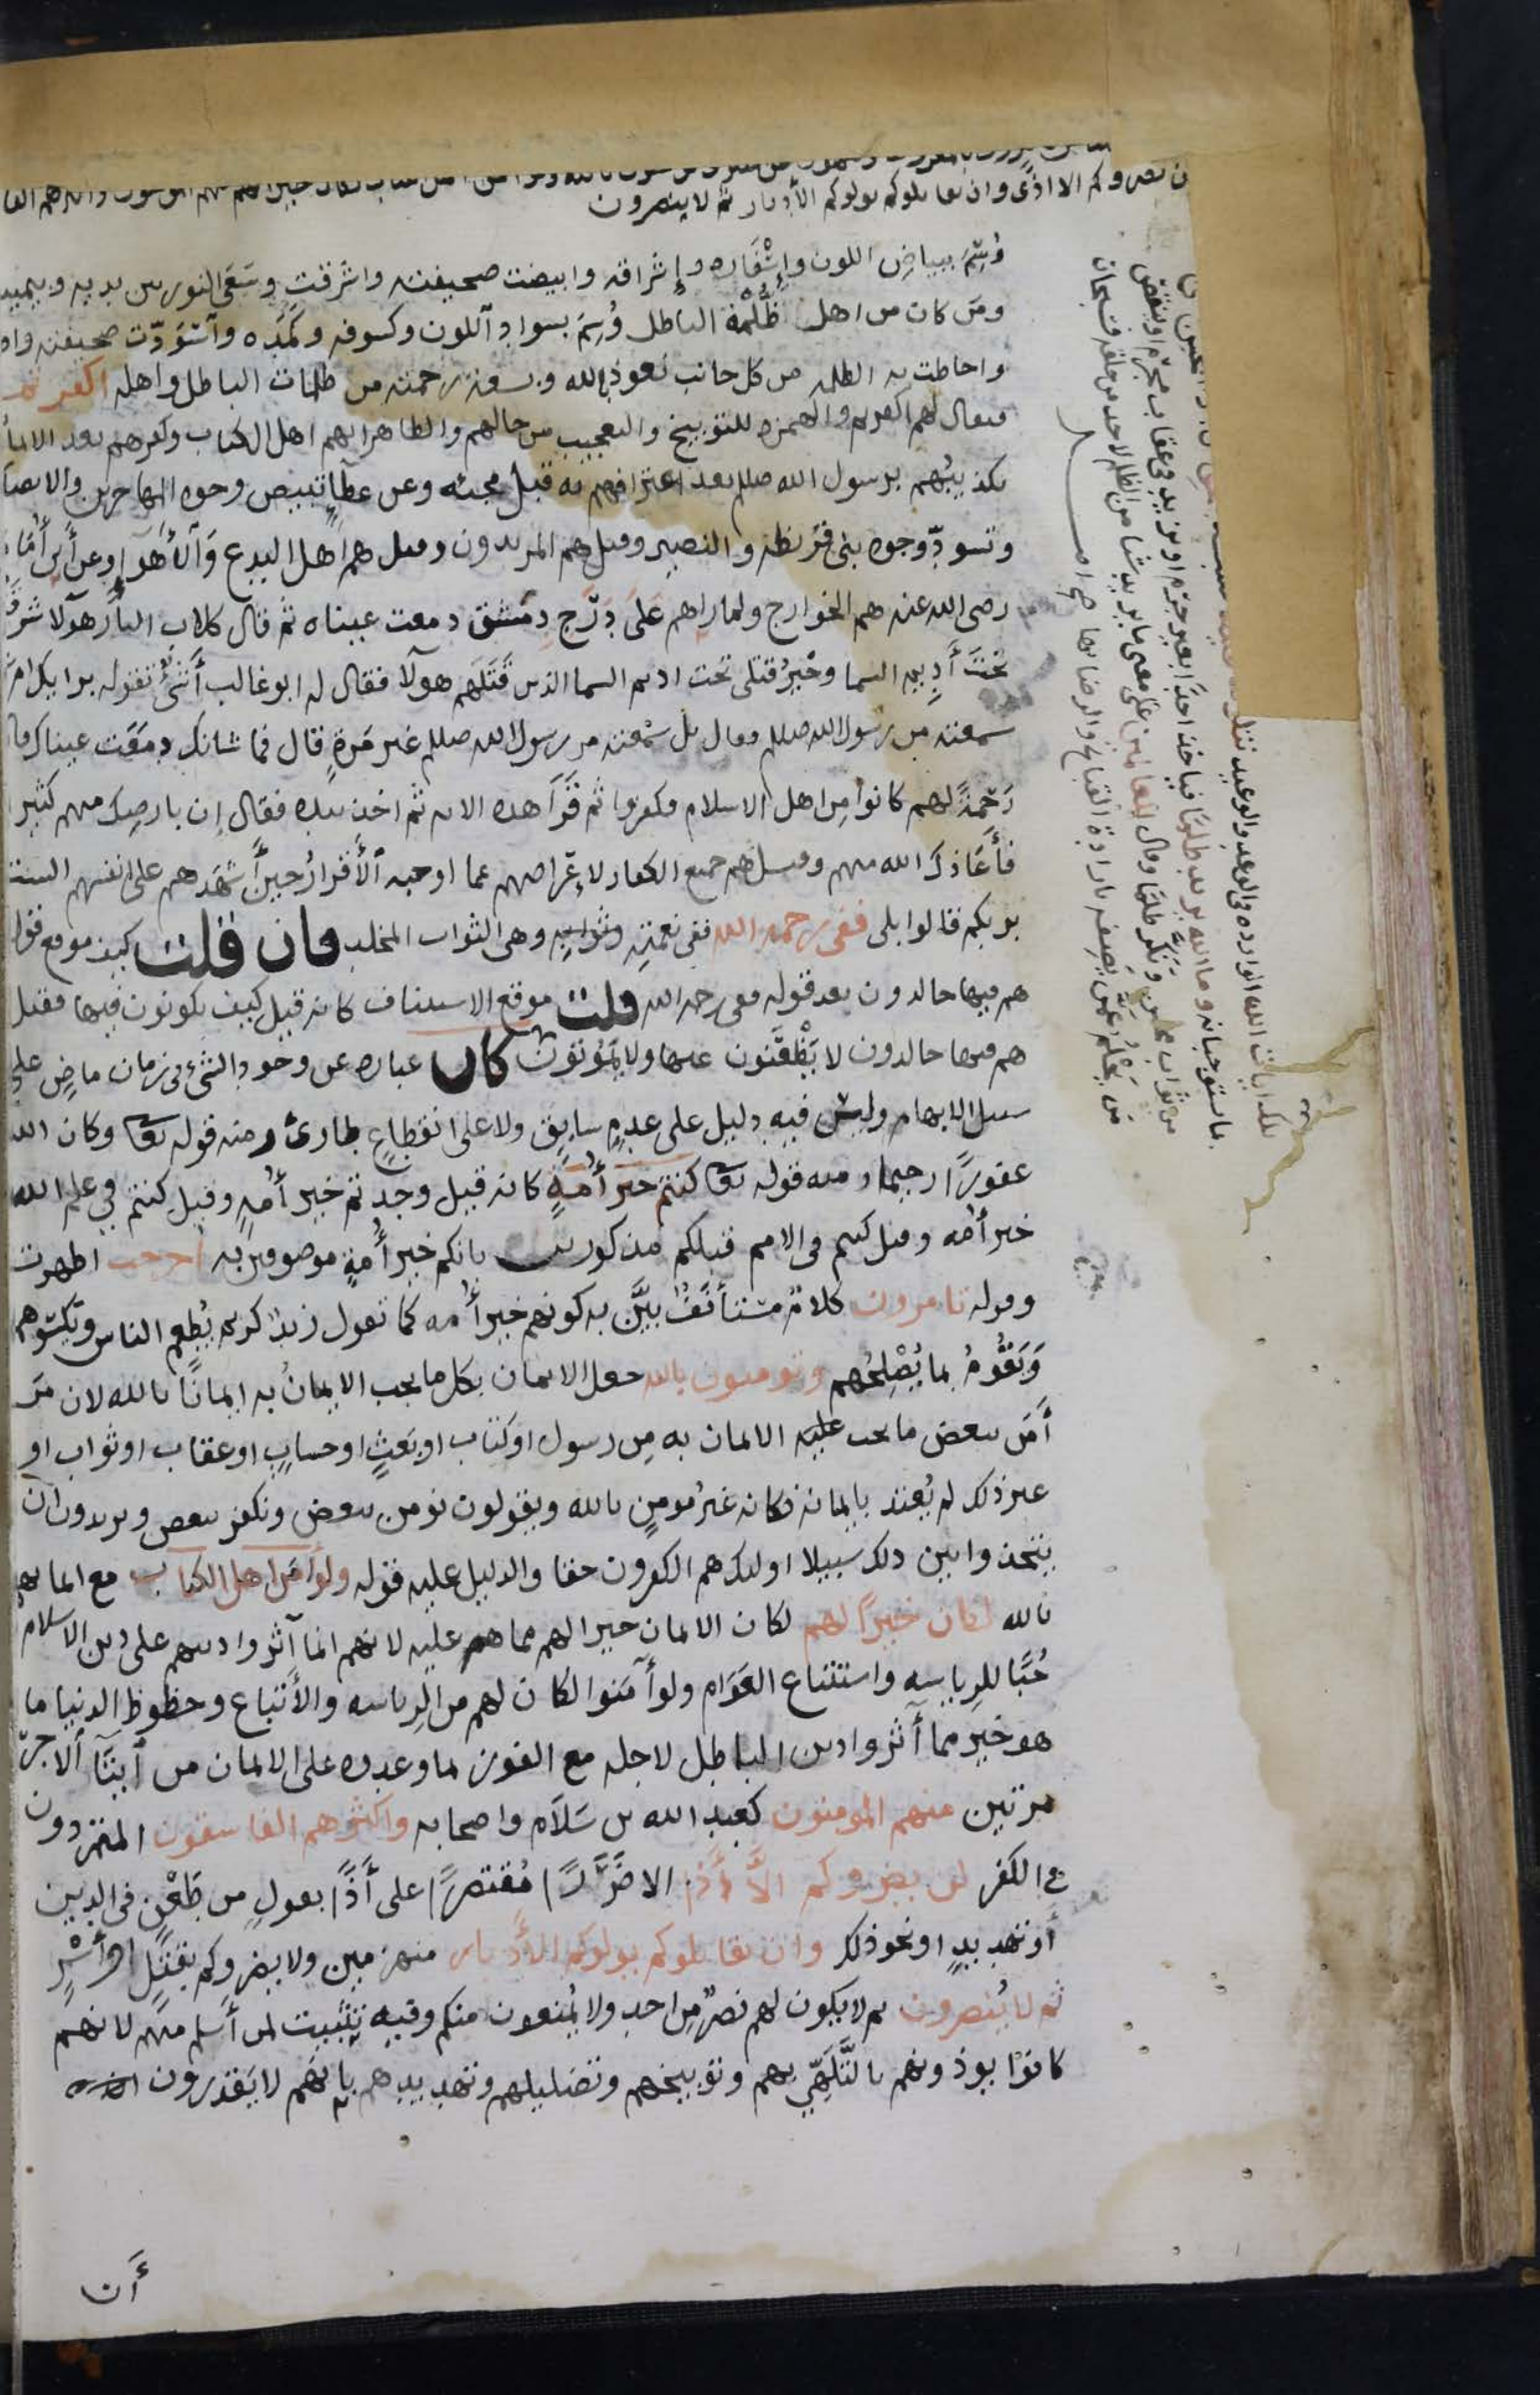 ن يضروكم الا اذى وان يقاتلوكم يولوكم الأدبار ثم لا ينصرون
وُسِمَ ببياضِ اللون وإِسْفَاره وإِشراقه وابيضت صحيفته واشرقت وسَعَى النور بين يديه وبيمينه
ومَن كان من اهل ظُلْمة الباطل وُسِمَ بسواد اللون وكسوفه وكَمَده واسْوَدّت صحيفته
واحاطت به الظلمه من كل جانب نعوذ بالله وبسعة رحمته من ظلمات الباطل واهله اكفرتم
فيقال لهم اكفرتم والهمزه للتوبيخ والتعجيب من حالهم والظاهر انهم اهل الكتاب وكفرهم بعد الايمان
تكذيبُهم برسول الله صللم بعد اعترافهم به قبل مجيئه وعن عطآءٍ تبيض وجوه المهاجرين والانصا
وتسودّ وجوه بنى قريظه والنضير وقيل هم المرتدون وقيل هم اهل البدع وَالأَهْوَآءِ وعن أَبى أُمَامَ
رضى الله عنه هم الخوارج ولما رآهم عَلَى دَرَج دِمَشق دمعت عيناه ثم قال كلاب النار هولآ شرُّ
تحْتَ أَدِيم السما وخيرُ قتلى تحت اديم السما الذين قَتَلَهم هولآ فقال له ابو غالب أَشَىْءٌ تقوله برايك ام
سمعته من رسول الله صللم فقال بل سَمعته من رسول الله صللم غير مَرةٍ قال فما شانك دمعَت عيناك قال
رَحْمةً لهم كانوا مِن اهل الاسلام فكفروا ثم قَرَأَ هذه الايه ثم اخذ بيده فقال إِن بارضِك منهم كثير
فأَعَاذَكَ الله منهم وقيل هم جميع الكفار لإِعْراضهم عما اوجبه الأَقرارُ حين أَشْهَدهم على انفسهم الست
بربكم قالوا بلى ففى رحمه الله ففى نعمتِه وثوابِه وهى الثواب المخلد فان قلت كيف موقع قوله
هم فيها خالدون بعد قوله ففى رحمه الله قلت موقع الاستيناف كانه قيل كيف يكونون فيها فقيل
هم فيها خالدون لا يَظْعَنون عنها ولا يَمُوتونَ كان عباره عن وجود الشئ فى زمان ماضٍ على
سبيل الابهام وليسَ فيه دليل على عدمٍ سابقٍ ولا على انقطاعٍ طارئ ومنه قوله تعا وكان الله
غفورًا رحيما ومنه قوله تعا كنتم خير أُمةٍ كانه قيل وجدتم خير أُمهٍ وقيل كنتم في علم الله
خير أمه وقيل كنتم فى الامم قبلكم مذكورين بانكم خير أُمةٍ موصوفين به أخرجت اظهرت
وقوله تامرون كلامٌ مستأنَفٌ بيَّن به كونهم خير أُمه كما تقول زيدٌ كريم يُطعم الناس وتكسُوهم
وَيَقُومُ بما يُصْلِحُهم وتؤمنون بالله جعل الايمان بكل ما يجب الايمانُ به ايمانًا بالله لان مَن
أَمَن ببعض ما يجب عليه الايمان به مِن رسول او كتاب او بَعثٍ او حسابٍ او عقاب او ثواب او
غير ذلك لم يُعتد بايمانه فكانه غيرُ مومنٍ بالله ويقولون نومن ببعض ونكفر ببعض ويريدون ان
يتخذوا بين ذلك سبيلا اولئك هم الكفرون حقا والدليل عليه قوله ولو آمَن اهل الكتاب مع ايمانهم
بالله لكان خيرًا لهم لكان الايمان خيرا لهم مما هم عليه لانهم انما آثروا دينهم على دين الاسلام
حُبًّا للرياسه واستتباع العَوَام ولو أمَنوا لكان لهم من الرياسه والأَتباع وحظوظ الدنيا ما
هو خير مما آثروا دين الباطل لاجله مع الفوز بما وعدوه على الايمان من أيتَآءِ الاجر
مرتين منهم المومنون كعبد الله بن سَلاَم واصحابه واكثرهم الفاسقون المتمردون
في الكفر لن يضروكم الاَّ أَذًى الا ضَرَرًا مُقتصرًا على أَذًى بقولٍ من طَعْنٍ فى الدين
أو تهديدٍ او نحو ذلك وان يقاتلوكم يولوكم الأَدبار منهزمين ولا يضروكم بقَتلٍ او أَسْرٍ
ثم لا يُنصرون ثم لا يكون لهم نصرٌ مِن احدٍ ولا يُمنعون منكم وفيه تثبيت لمن أَسلم منهم لانهم
كانوا يوذونهم بالتَّلَهِّي بهم وتوبيخهم وتضليلهم وتهديدهم بانهم لا يَقدرون
أَن
تلك ايات الله الوارده فى الوعد والوعيد نتلو
بما استوجبانه وما الله يريد ظلمًا فياخذ احدًا بغير جرم او يزيد في عقاب مجرم او ينقص
من ثواب محسن ونكّر ظلمًا وقال للعالمين على معنى ما يريد شيا من الظلم لاحد من خلقه فسبحان
من يحلُم عمن يصفه بارادة القبائح والرضا بها